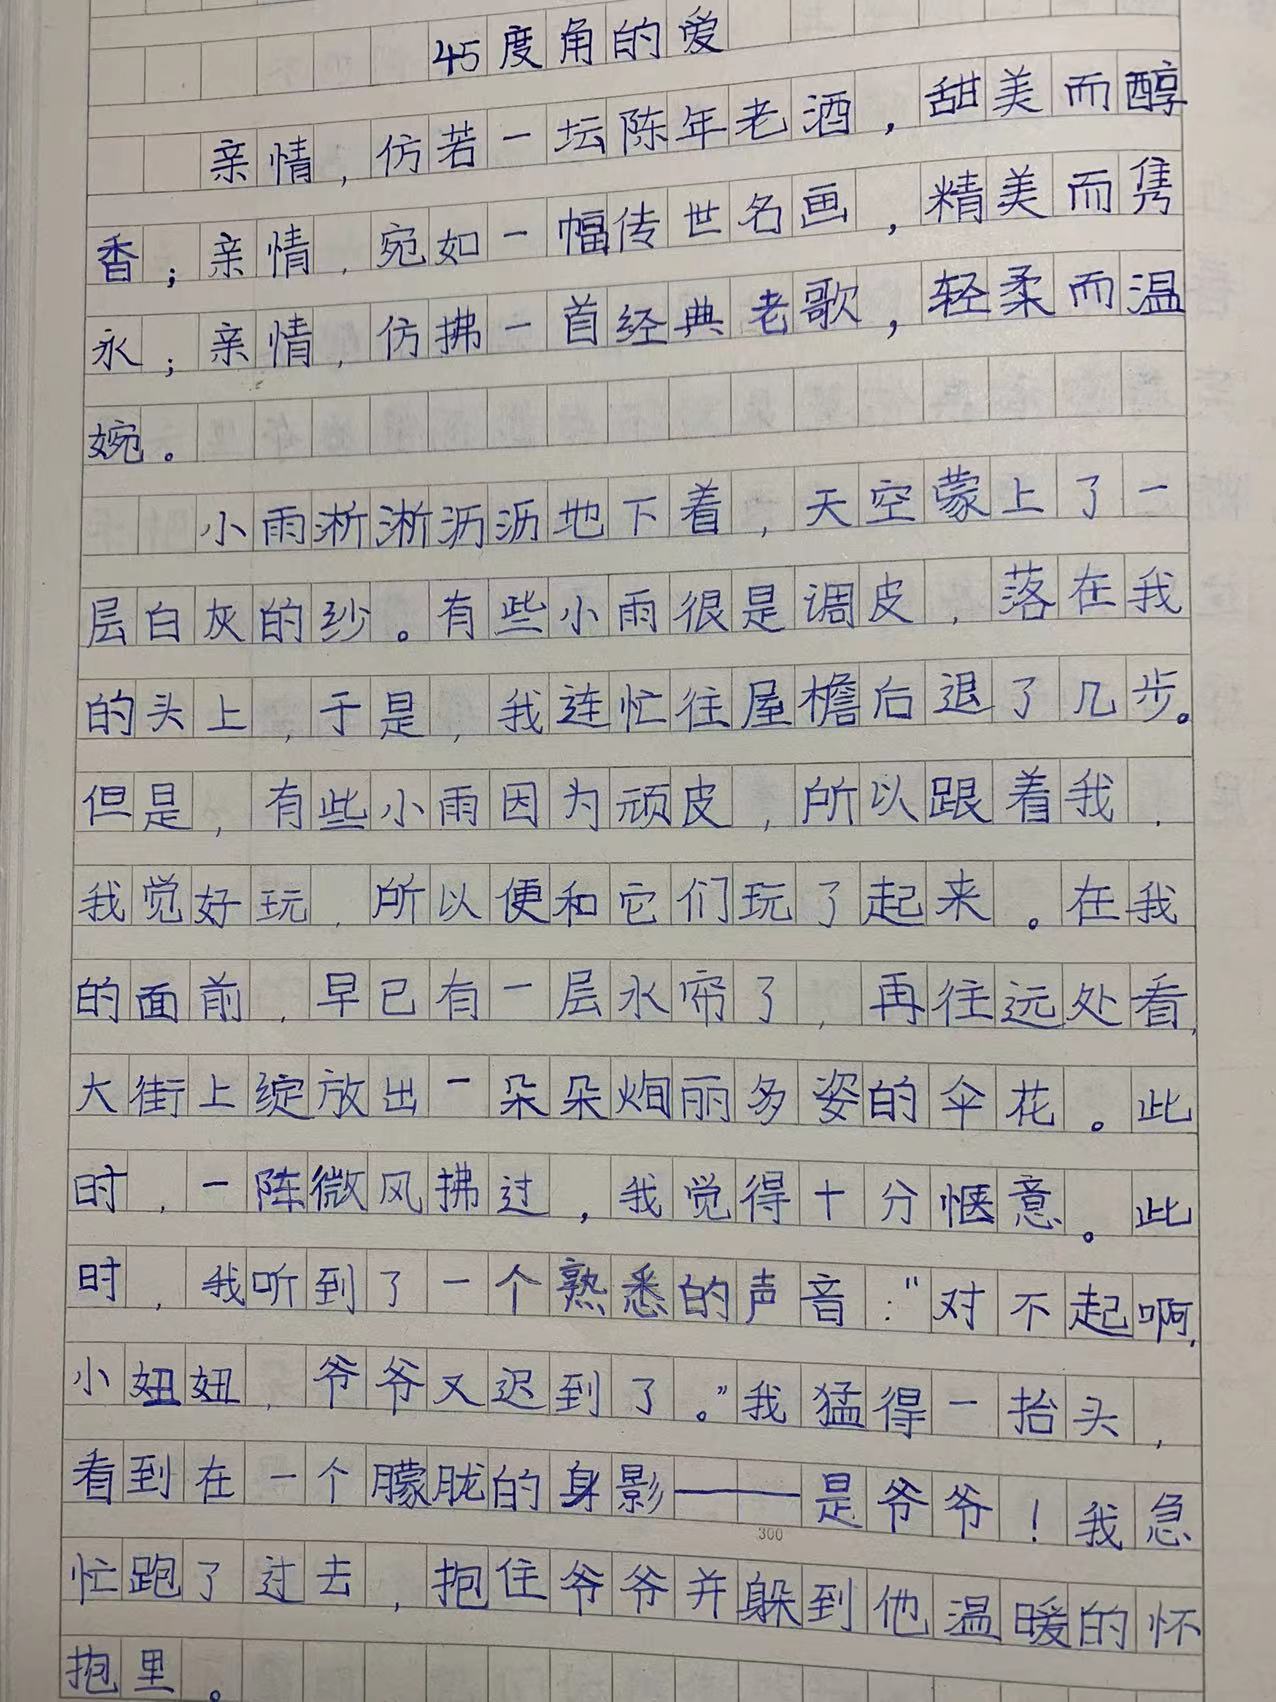 45度角的爱
亲情，仿若一坛陈年老酒，甜美而醇
香；亲情，宛如一幅传世名画，精美而隽
永；亲情，仿拂一首经典老歌，轻柔而温
婉。
小雨淅淅沥沥地下着，天空蒙上了一
层白灰的纱。有些小雨很是调皮，落在我
的头上，于是，我连忙往屋檐后退了几步。
但是，有些小雨因为顽皮，所以跟着我，
我觉好玩，所以便和它们玩了起来。在我
的面前，早已有一层水帘了，再往远处看，
大街上绽放出一朵朵炯丽多姿的伞花。此
时，一阵微风拂过，我觉得十分惬意。此
时，我听到了一个熟悉的声音："对不起啊，
小妞妞，爷爷又迟到了。"我猛得一抬头，
看到在一个朦胧的身影——是爷爷！我急
300
忙跑了过去，抱住爷爷并躲到他温暖的怀
抱里。